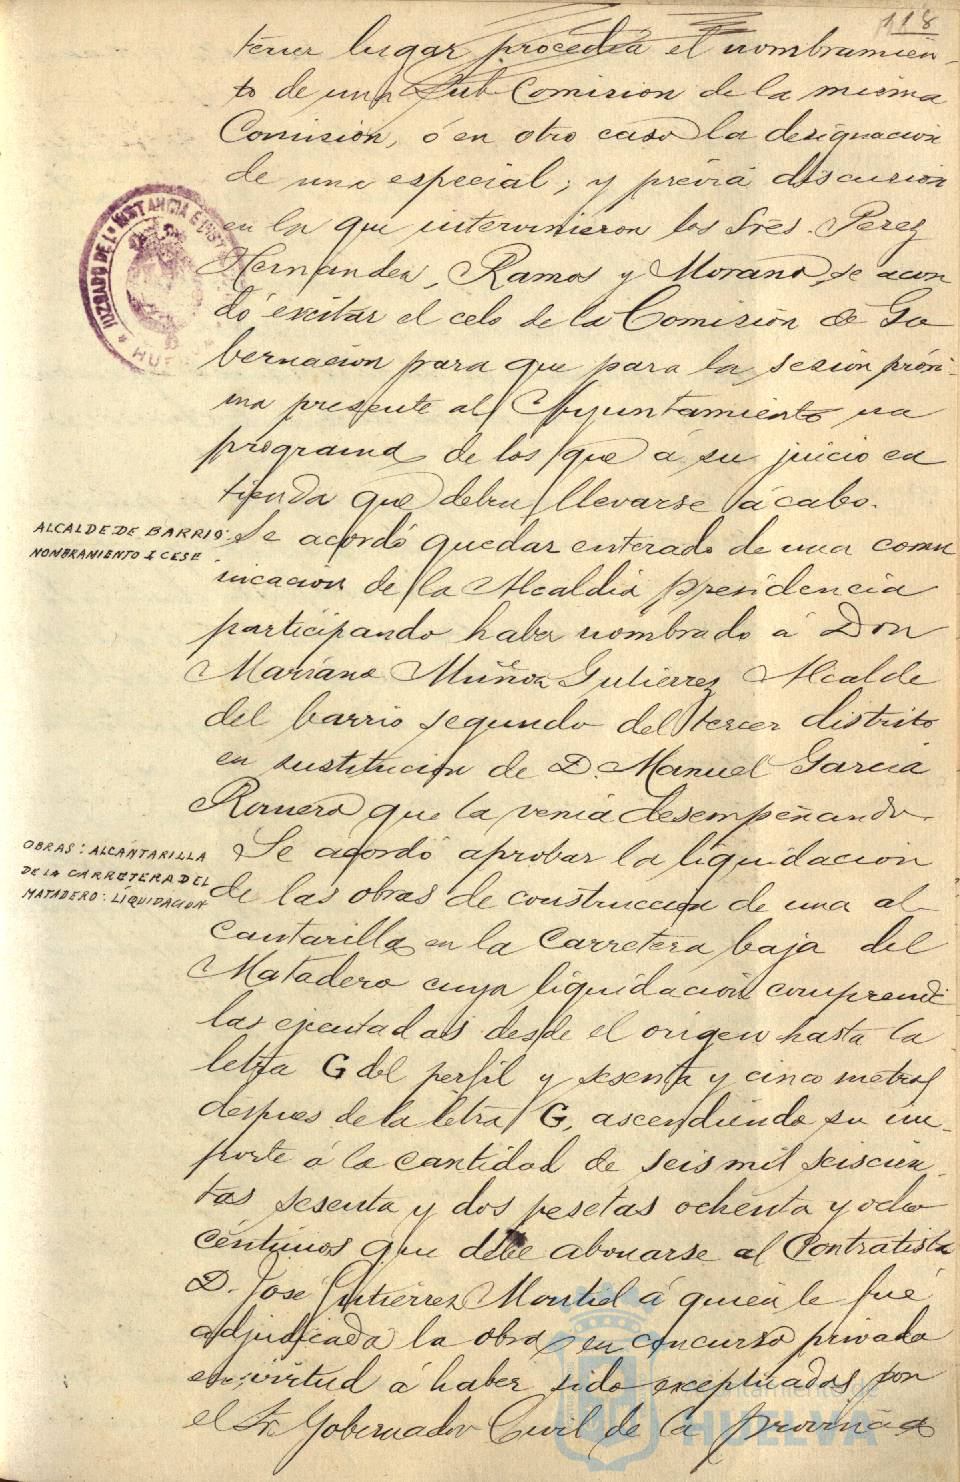 118
tener lugar procedia el nombramien-
to de una Sub Comision de la misma
Comision, ó en otro caso la designacion
de una especial; y prévia discusion
en la que intervinieron los Sres. Perez
Hernandez, Ramos y Morano, se acor
dó excitar el celo de la Comisión de Go
bernacion para que para la sesion próxi-
ma presente al Ayuntamiento un
programa de los que á su juicio en
tienda que deben llevarse á cabo.
ALCALDE DE BARRIO:
NOMBRAMIENTO & CESE
Se acordó quedar enterado de una comu
nicacion de la Alcaldia presidencia
participando haber nombrado á Don
Mariano Muñoz Gutierrez Alcalde
del barrio segundo del tercer distrito
en sustitucion de D. Manuel Garcia
Romero que la venia desempeñando.
OBRAS: ALCANTARILLA
DE LA CARRETERA DEL
MATADERO: LIQUIDACION
Se acordó aprobar la liquidacion
de las obras de construccion de una al-
cantarilla en la Carretera baja del
Matadero cuya liquidacion comprende
las ejecutadas desde el origen hasta la
letra G del perfil y sesenta y cinco metros
despues de la letra G, ascendiendo su im-
porte á la cantidad de seis mil seiscien-
tas sesenta y dos pesetas ochenta y ocho
céntimos que debe abonarse al Contratista
D. José Gutierrez Montiel á quien le fué
adjudicada la obra en concurso privado
en virtud á haber sido exceptuados por
el Sr. Gobernador Civil de la provincia
JUZGADO DE 1ª INSTANCIA E INST
HUE
Ayuntamiento de
HUELVA